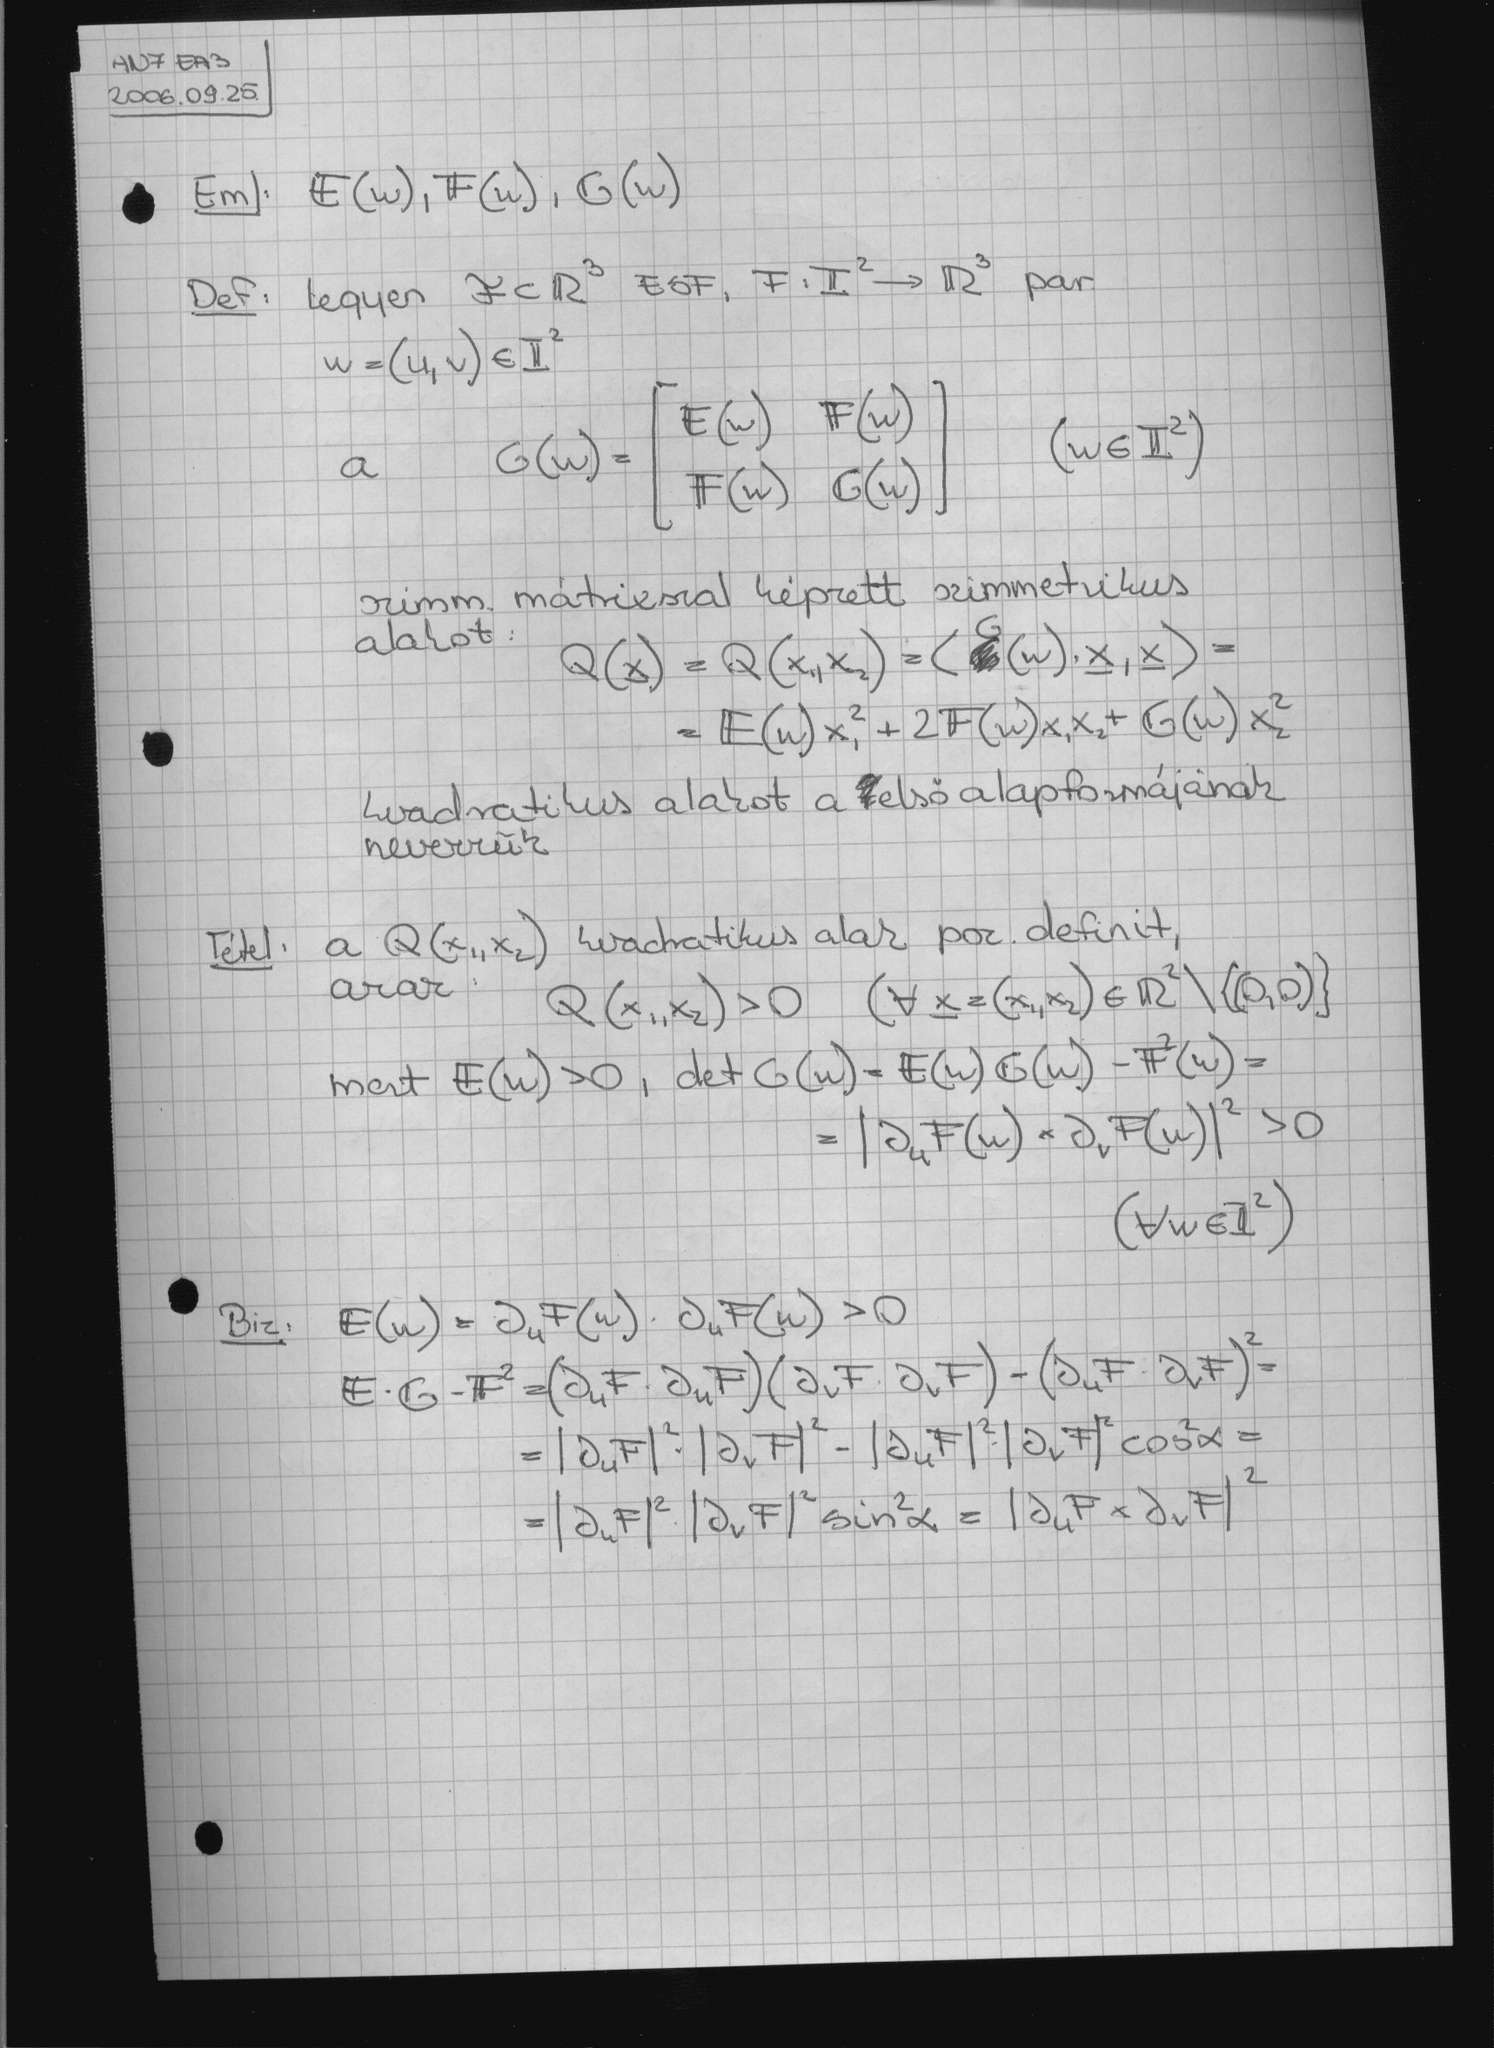 AN7 EA3
2006.09.25.
Eml: 𝔼(w), 𝔽(w), 𝔾(w)
Def: Legyen ℱ⊂ℝ³ ESF, F: 𝕀²→ℝ³ par
w=(u,v)∈𝕀²
a G(w)= [𝔼(w) 𝔽(w); 𝔽(w) 𝔾(w)] (w∈𝕀²)
szimm. mátrixszal képzett szimmetrikus
alakot:
Q(x) = Q(x₁,x₂) = ⟨G(w)·x, x⟩ =
= 𝔼(w)x₁² + 2𝔽(w)x₁x₂ + 𝔾(w)x₂²
kvadratikus alakot a első alapformájának
nevezzük
Tétel: a Q(x₁,x₂) kvadratikus alak poz. definit,
azaz:
Q(x₁,x₂)>0 (∀ x=(x₁,x₂)∈ℝ²\{(0,0)}
mert 𝔼(w)>0, det G(w)=𝔼(w)𝔾(w)-𝔽²(w)=
=|∂ᵤF(w)×∂ᵥF(w)|²>0
(∀w∈𝕀²)
Biz: 𝔼(w)=∂ᵤF(w)·∂ᵤF(w)>0
𝔼·𝔾-𝔽²=(∂ᵤF·∂ᵤF)(∂ᵥF·∂ᵥF)-(∂ᵤF·∂ᵥF)²=
=|∂ᵤF|²·|∂ᵥF|²-|∂ᵤF|²·|∂ᵥF|²cos²α=
=|∂ᵤF|²·|∂ᵥF|²sin²α=|∂ᵤF×∂ᵥF|²